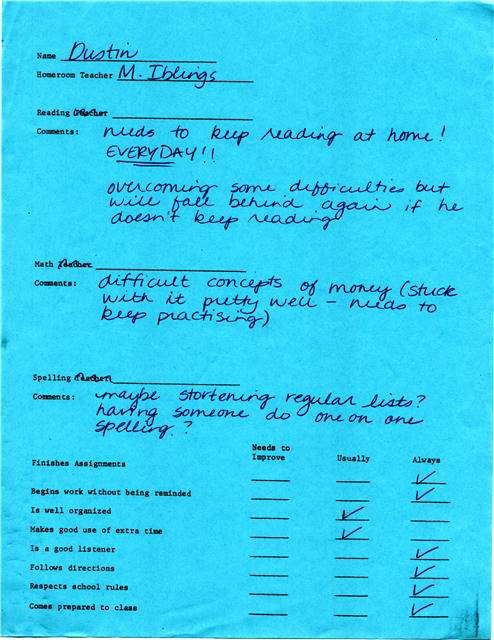 Name Dustin
Homeroom Teacher M. Iblings
Reading Teacher
Comments: needs to keep reading at home!
EVERYDAY!!
overcoming some difficulties but
will fall behind again if he
doesn't keep reading
Math Teacher
Comments: difficult concepts of money (stuck
with it pretty well - needs to
keep practising)
Spelling Teacher
Comments: maybe stortening regular lists?
having someone do one on one
spelling?
Needs to
Improve Usually Always
Finishes Assignments ✓
Begins work without being reminded ✓
Is well organized ✓
Makes good use of extra time ✓
Is a good listener ✓
Follows directions ✓
Respects school rules ✓
Comes prepared to class ✓